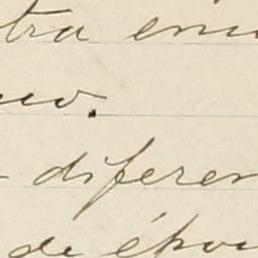 tra enc
uo.
diferen
de époc